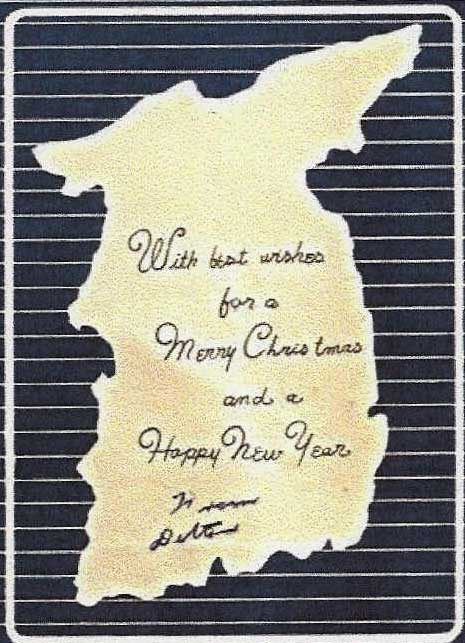 With best wishes
for a
Merry Christmas
and a
Happy New Year